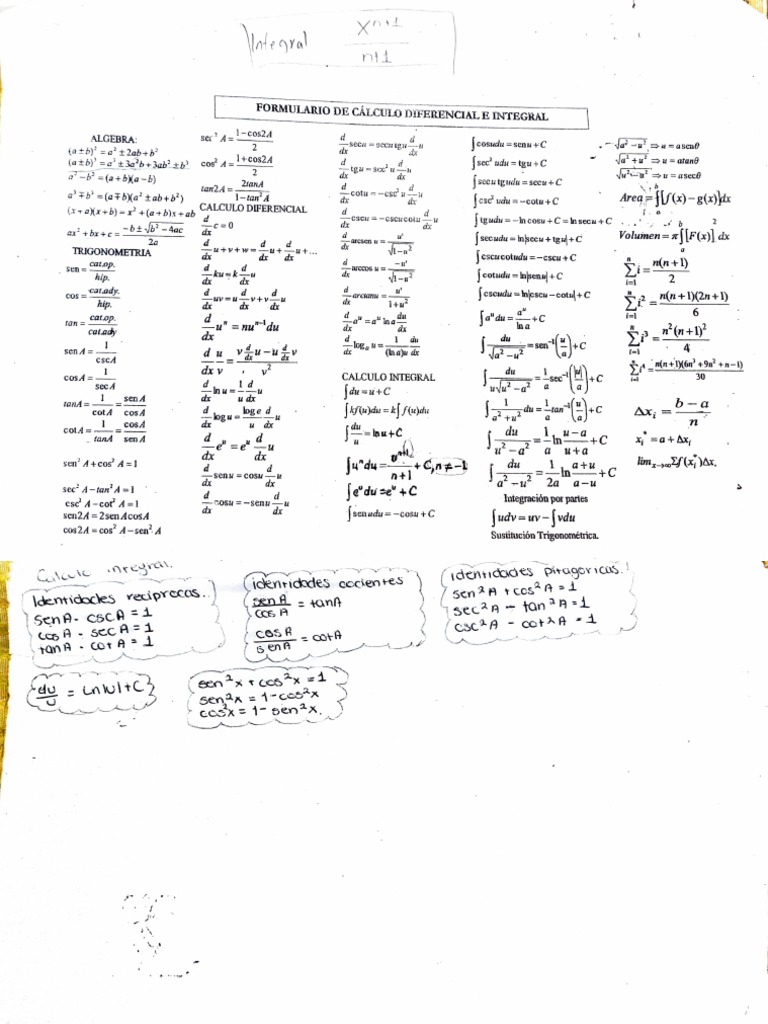 Integral x^{n+1}/n+1
FORMULARIO DE CÁLCULO DIFERENCIAL E INTEGRAL
ALGEBRA:
(a ± b)² = a² ± 2ab + b²
(a ± b)³ = a³ ± 3a²b + 3ab² ± b³
a² − b² = (a + b)(a − b)
a³ ∓ b³ = (a ∓ b)(a² ± ab + b²)
(x + a)(x + b) = x² + (a + b)x + ab
ax² + bx + c = −b ± √b² − 4ac / 2a
TRIGONOMETRIA
sen = cat.op. / hip.
cos = cat.ady. / hip.
tan = cat.op. / cat.ady
sen A = 1 / csc A
cos A = 1 / sec A
tan A = 1 / cot A = sen A / cos A
cot A = 1 / tan A = cos A / sen A
sen² A + cos² A = 1
sec² A − tan² A = 1
csc² A − cot² A = 1
sen2A = 2sen A cos A
cos2A = cos² A − sen² A
sec² A = 1 − cos2A / 2
cos² A = 1 + cos2A / 2
tan2A = 2tanA / 1 − tan² A
CALCULO DIFERENCIAL
d/dx c = 0
d/dx u + v + w = d/dx u + d/dx u + ...
d/dx ku = k d/dx u
d/dx uv = u d/dx v + v d/dx u
d/dx uⁿ = nuⁿ⁻¹ du
d/dx u/v = v d/dx u − u d/dx v / v²
d/dx ln u = 1/u d/dx u
d/dx log u = log e / u d/dx u
d/dx eᵘ = eᵘ d/dx u
d/dx senu = cosu d/dx u
d/dx cosu = −senu d/dx u
d/dx secu = secu tgu d/dx u
d/dx tgu = sec² u d/dx u
d/dx cotu = −csc² u d/dx u
d/dx cscu = −cscu cotu d/dx u
d/dx arcsen u = u' / √1 − u²
d/dx arccos u = −u' / √1 − u²
d/dx arctanu = u' / 1 + u²
d/dx aᵘ = aᵘ ln a du/dx
d/dx logₐ u = 1 / (ln a)u du/dx
CALCULO INTEGRAL
∫ du = u + C
∫ kf(u)du = k∫ f(u)du
∫ du/u = ln u + C
∫ uⁿ du = u^{n+1} / n+1 + C, n ≠ −1
∫ eᵘ du = eᵘ + C
∫ sen udu = −cosu + C
∫ cosudu = senu + C
∫ sec² udu = tgu + C
∫ secu tgudu = secu + C
∫ csc² udu = −cotu + C
∫ tgudu = −ln cosu + C = ln secu + C
∫ secudu = ln|secu + tgu| + C
∫ cscucotudu = −cscu + C
∫ cotudu = ln|senu| + C
∫ cscudu = ln|cscu − cotu| + C
∫ aᵘ du = aᵘ / ln a + C
∫ du / √a² − u² = sen⁻¹(u/a) + C
∫ du / u√u² − a² = 1/a sec⁻¹(|u|/a) + C
∫ 1 / a² + u² du = 1/a tan⁻¹(u/a) + C
∫ du / u² − a² = 1/a ln u − a / u + a + C
∫ du / a² − u² = 1/2a ln a + u / a − u + C
Integración por partes
∫ udv = uv − ∫ vdu
Sustitución Trigonométrica.
√a² − u² ⇒ u = a senθ
√a² + u² ⇒ u = a tanθ
√u² − a² ⇒ u = a secθ
Area = ∫ₐᵇ [f(x) − g(x)]dx
Volumen = π∫ₐᵇ [F(x)]² dx
∑ᵢ₌₁ⁿ i = n(n+1) / 2
∑ᵢ₌₁ⁿ i² = n(n+1)(2n+1) / 6
∑ᵢ₌₁ⁿ i³ = n²(n+1)² / 4
∑ᵢ₌₁ⁿ i⁴ = n(n+1)(6n³ + 9n² + n − 1) / 30
Δxᵢ = b − a / n
xᵢ* = a + Δxᵢ
lim_{x→∞} Σf(xᵢ*)Δxᵢ
Calculo integral.
Identidades reciprocas..
senA · cscA = 1
cos A · sec A = 1
tanA · cot A = 1
identidades cocientes
senA / cos A = tanA
cosA / senA = cotA
identidades pitagoricas.!
sen² A + cos² A = 1
sec² A − tan² A = 1
csc² A − cot² A = 1
du/u = Ln|u| + C
sen²x + cos²x = 1
sen²x = 1 − cos²x
cos²x = 1 − sen²x.